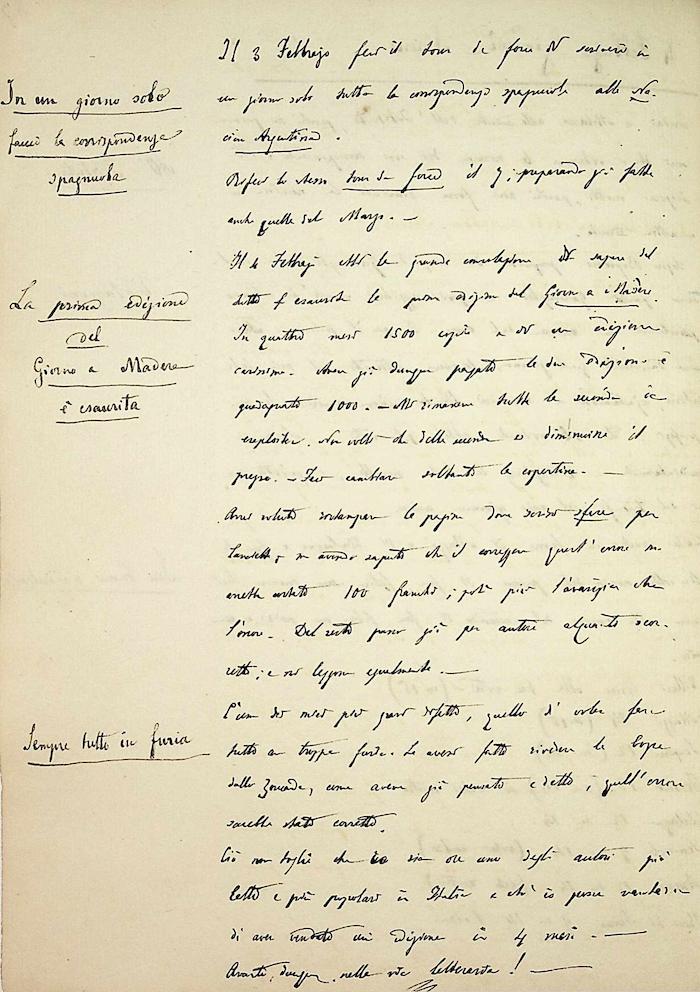 Il 3 Febbrajo feci il tour de force di scrivere in
un giorno solo tutta la corrispondenza spagnuola alla Na-
cion Argentina.
In un giorno solo
faccio la corrispondenza
spagnuola
Rifeci lo stesso tour de force il 7, preparando già fatta
anche quella del Marzo. —
Il Febbrajo ebbi la grande consolazione di sapere del
esaurita la prima edizione del Giorno a Madera.
La prima edizione
del
Giorno a Madera
è esaurita
In quattro mesi 1500 copie e di un edizione
carissima. Aveva già dunque pagato le due edizioni e
guadagnato 1000. — Mi rimaneva tutta la seconda da
exploiter. Non volli che della seconda si diminuisse il
prezzo. — Feci cambiare soltanto la copertina. —
Avrei voluto ristampare la pagina dove scrissi per
ma avendo saputo che il correggere quest'errore mi
costato 100 franchi, potè più l'avarizia che
l'onore. Del resto passo già per autore alquanto scor-
retto; e mi leggono egualmente. —
Sempre tutto in furia
L'uno dei miei più gravi difetti, quello d'voler fare
tutto in troppa furia. Se avessi fatto rivedere le
dallo come aveva già pensato e detto, quell'errore
sarebbe stato corretto.
Ciò non toglie che io sia ora uno degli autori più
letti e più popolari in Italia e ch'io possa vantarmi
di aver venduto un'edizione in 4 mesi. —
Avanti, dunque, nella via letteraria! —